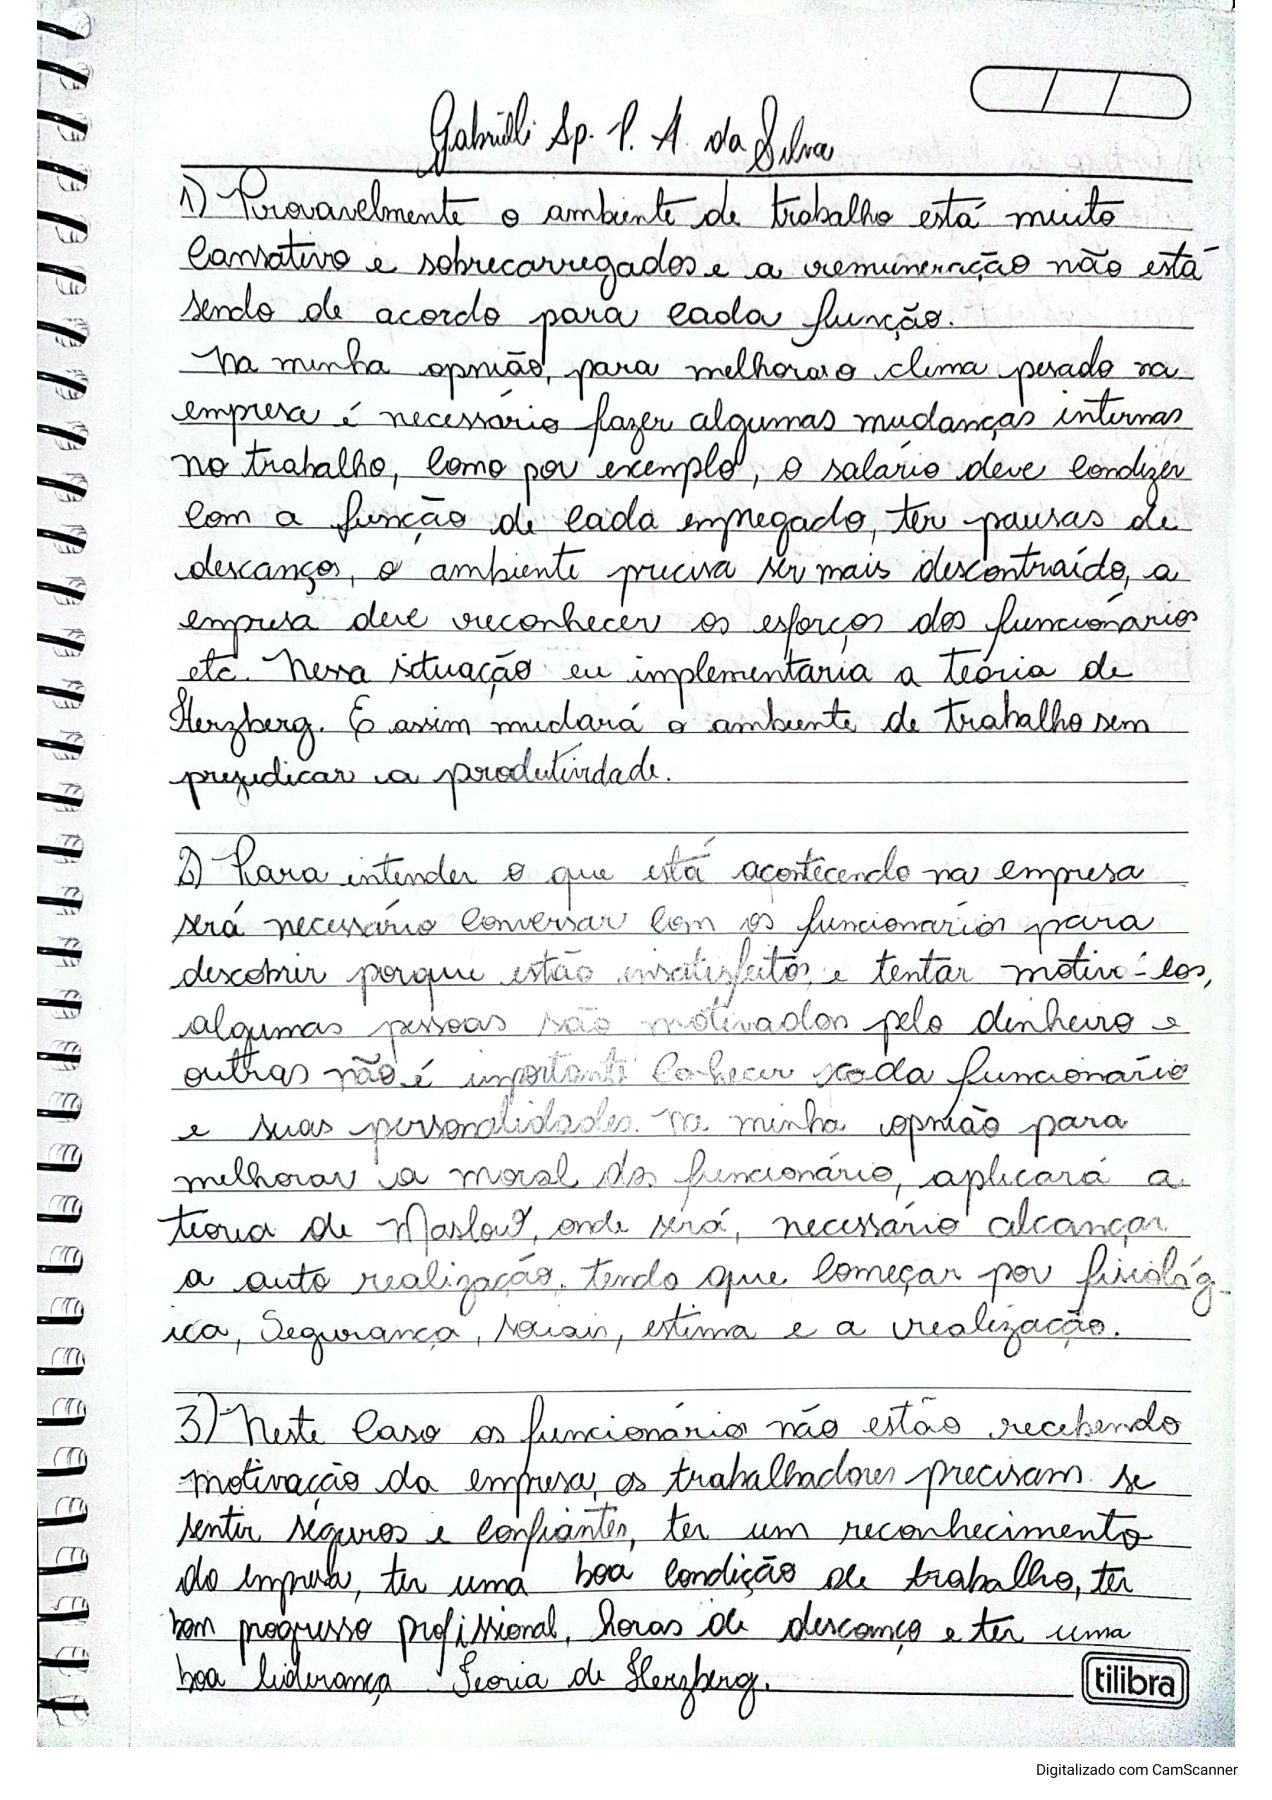 Gabrielli Ap. P. A. da Silva
1) Provavelmente o ambiente de trabalho está muito
cansativo e sobrecarregados e a remuneração não está
sendo de acordo para cada função.
Na minha opnião, para melhorar o clima pesado na
empresa é necessário fazer algumas mudanças internas
no trabalho, como por exemplo, o salário deve condizer
com a função de cada empregado, ter pausas de
descanços, o ambiente precisa ser mais descontraído, a
empresa deve reconhecer os esforços dos funcionários
etc. Nessa situação eu implementaria a teoria de
Herzberg. E assim mudará o ambiente de trabalho sem
prejudicar a produtividade.
2) Para intender o que está acontecendo na empresa
será necessário conversar com os funcionarios para
descobrir porque estão insatisfeitos e tentar motivá-los,
algumas pessoas são motivados pelo dinheiro e
outras não é importante conhecer cada funcionário
e suas personalidades. Na minha opnião para
melhorar a moral do funcionário, aplicará a
teoria de Maslow, onde será, necessário alcançar
a auto realização, tendo que começar por fisiológ-
ica, Segurança, sociais, estima e a realização.
3) Neste caso os funcionário não estão recebendo
motivação da empresa, os trabalhadores precisam se
sentir seguros e confiantes, ter um reconhecimento
da empresa, ter uma boa condição de trabalho, ter
bom progresso profissional, horas de descanço e ter uma
boa liderança. Teoria de Herzberg.
tilibra
Digitalizado com CamScanner